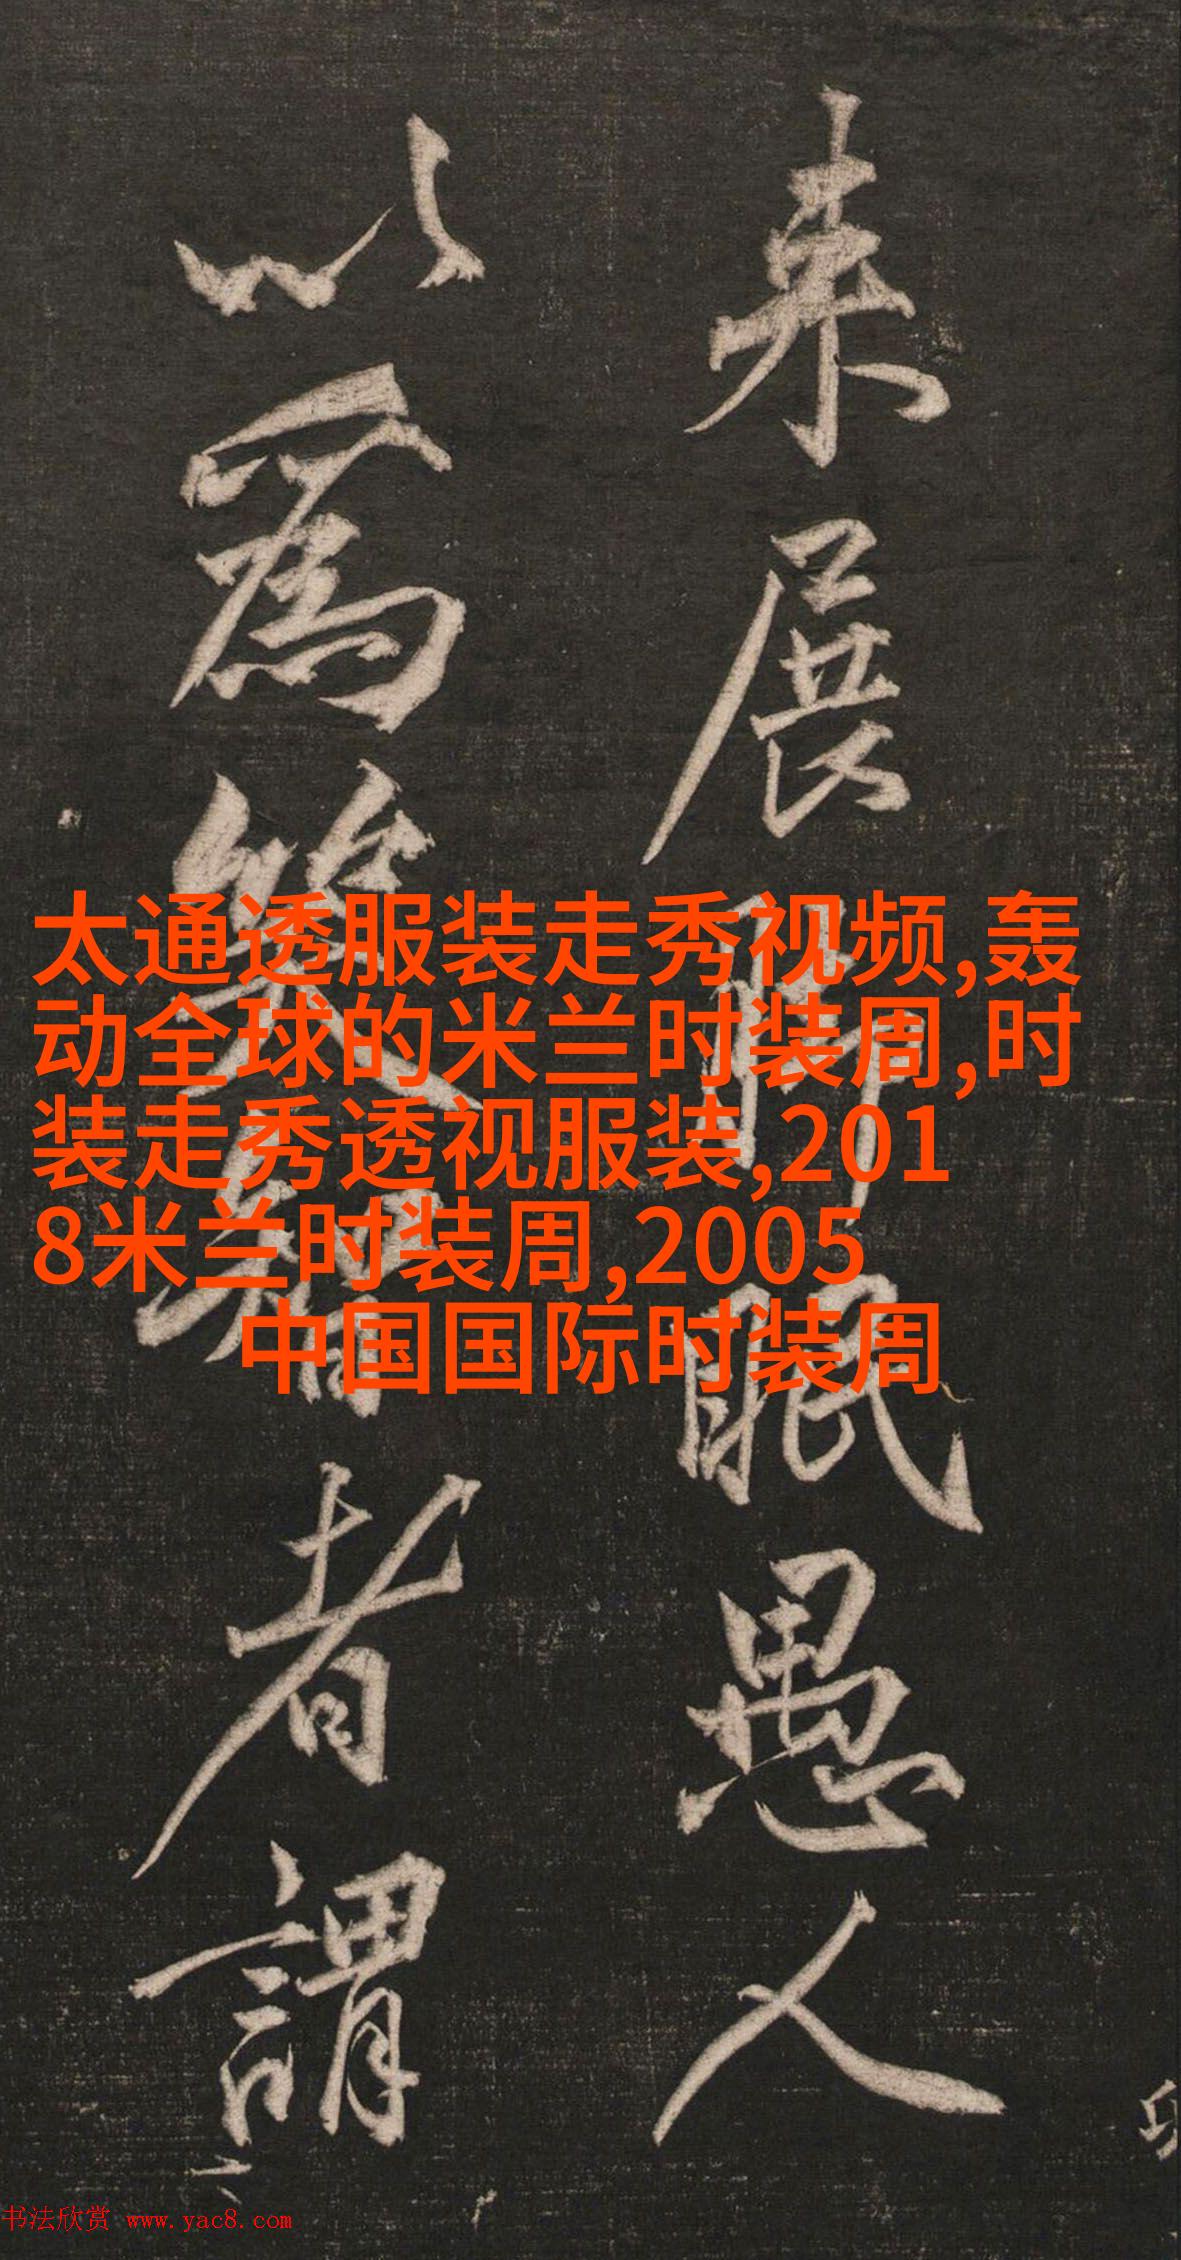 来展脚眠愚人
以為智者謂
太通透服装走秀视频,轰
动全球的米兰时装周,时
装走秀透视服装,201
8米兰时装周,2005
中国国际时装周
书法欣赏 www.yac8.com